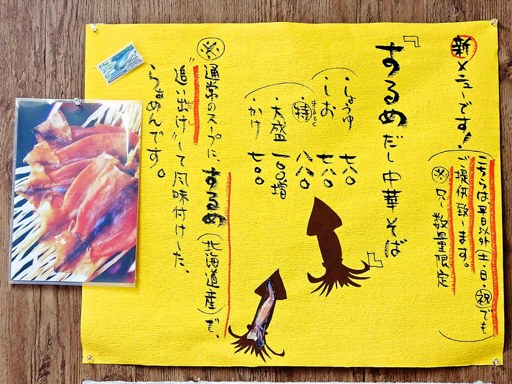 新メニューです!
こちらは平日以外(土・日・祝でも
ご提供致します。
※only数量限定
『するめだし中華そば』
・しょうゆ 七八〇
・しお 七八〇
・特 八八〇
・大盛 一〇〇増
・かけ 七〇〇
※通常のスープに、するめ(北海道産)で、
"追い出け"して風味付けした、
らぁめんです。